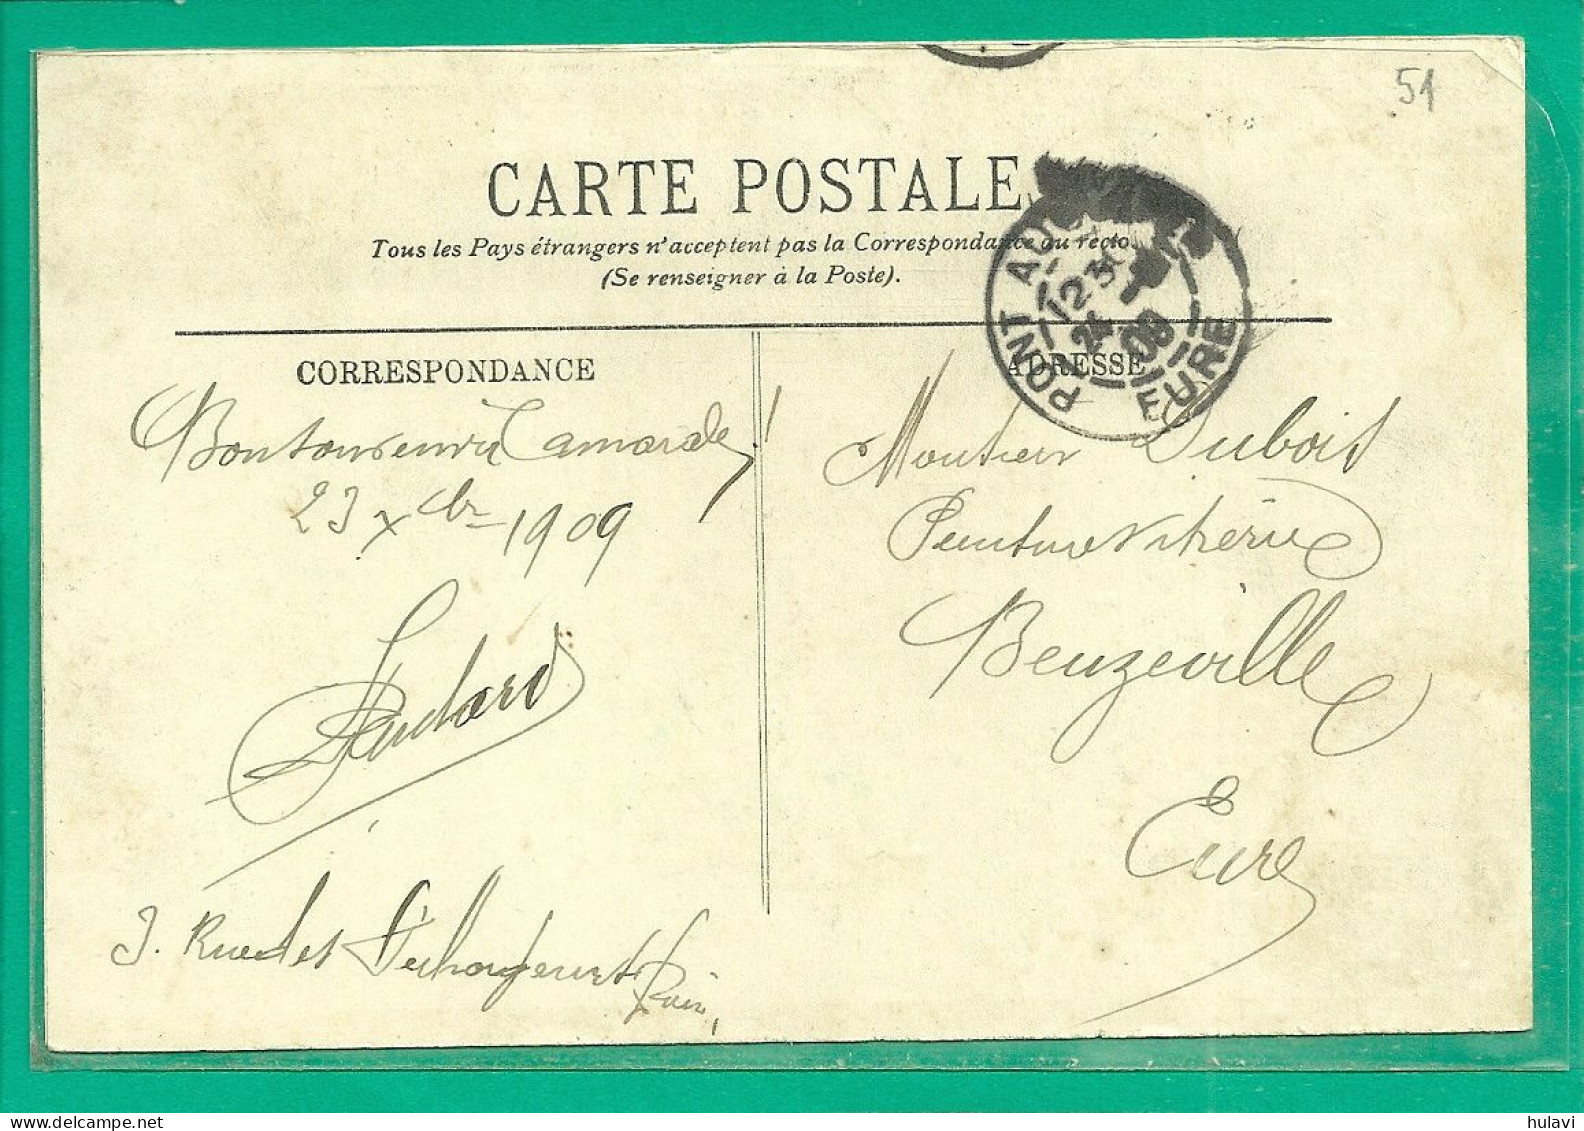 51
CARTE POSTALE
Tous les Pays étrangers n'acceptent pas la Correspondance au recto.
(Se renseigner à la Poste).
PONT AUDEMER
12 30
24
09
EURE
CORRESPONDANCE
Bon souvenir Camarade!
23 xbre 1909
3. Rue des
ADRESSE
Monsieur Dubois
Peinture Vitrerie
Beuzeville
Eure
hulavi